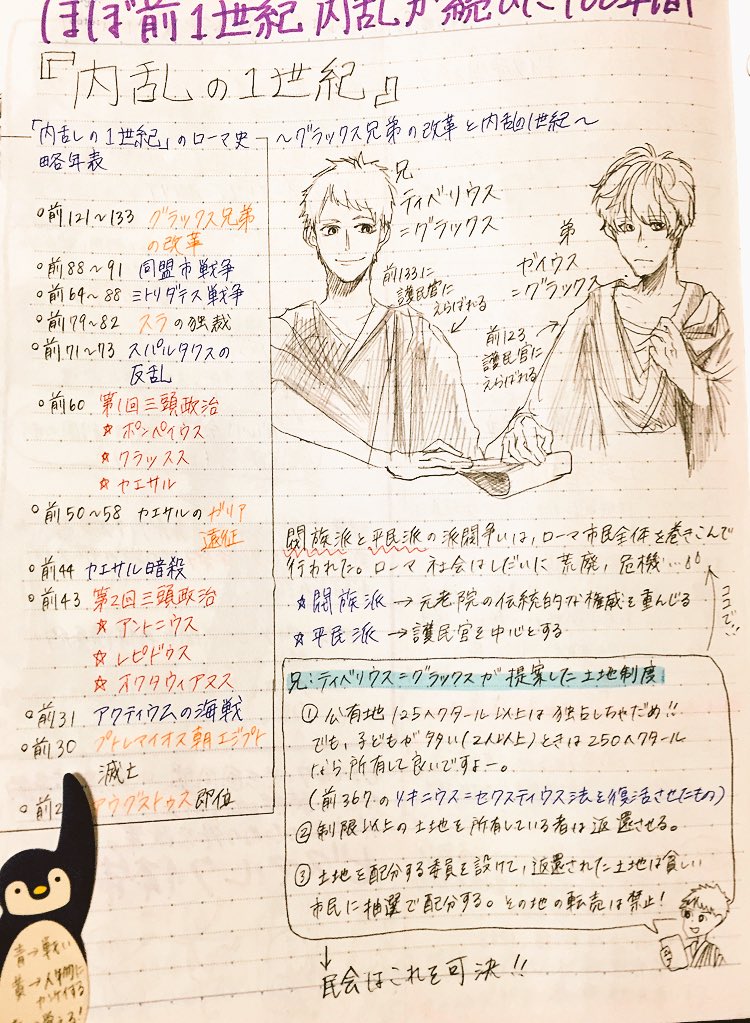 ほぼ前1世紀 内乱が続いた100年間
『内乱の1世紀』
「内乱の1世紀」のローマ史
略年表
○前121〜133 グラックス兄弟
の改革
○前88〜91 同盟市戦争
○前64〜88 ミトリダテス戦争
○前79〜82 スラの独裁
○前71〜73 スパルタクスの
反乱
○前60 第1回三頭政治
☆ポンペイウス
☆クラッスス
☆カエサル
○前50〜58 カエサルのガリア
遠征
○前44 カエサル暗殺
○前43 第2回三頭政治
☆アントニウス
☆レピドゥス
☆オクタウィアヌス
○前31 アクティウムの海戦
○前30 プトレマイオス朝エジプト
滅亡
○前2 アウグストゥス即位
青→戦い
黄→人物に
カンケイする
〜グラックス兄弟の改革と内乱の1世紀〜
兄
ティベリウス
=グラックス
前133に
護民官に
えらばれる
弟
ガイウス
=グラックス
前123
護民官に
えらばれる
閥族派と平民派の派閥争いは、ローマ市民全体を巻きこんで
行われた。ローマ社会はしだいに荒廃,危機…
ココで!!
☆閥族派→元老院の伝統的な権威を重んじる
☆平民派→護民官を中心とする
兄:ティベリウス=グラックスが提案した土地制度
① 公有地125ヘクタール以上は独占しちゃだめ!!
でも、子どもが多い(2人以上)ときは250ヘクタール
なら所有して良いですよー。
(前367のリキニウス=セクスティウス法を復活させたもの)
② 制限以上の土地を所有している者は返還させる。
③ 土地を配分する委員を設けて、返還された土地は貧しい
市民に抽選で配分する。その地の転売は禁止!
↓
民会はこれを可決!!